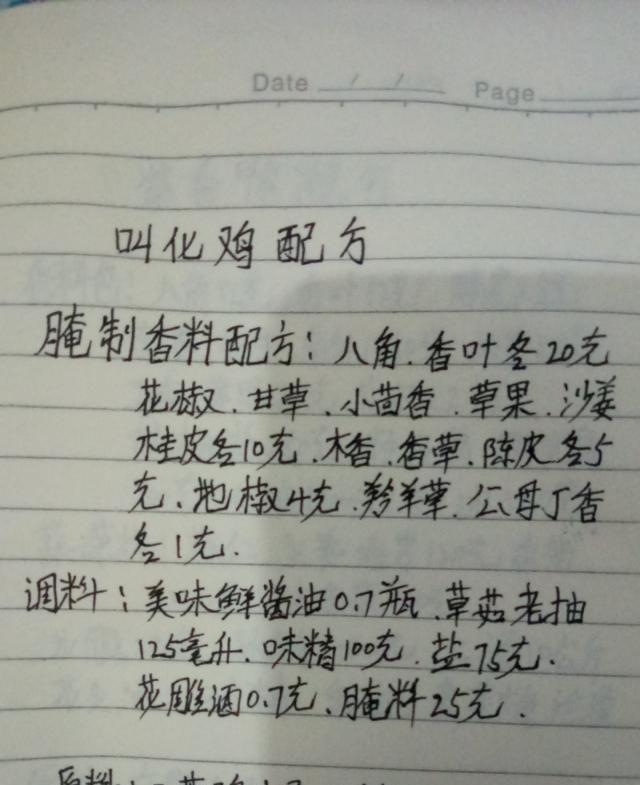 Date / / Page
叫化鸡配方
腌制香料配方：八角、香叶各20克
花椒、甘草、小茴香、草果、沙姜
桂皮各10克、木香、香草、陈皮各5
克、地椒4克、羚羊草、公母丁香
各1克.
调料：美味鲜酱油0.7瓶、草菇老抽
125毫升、味精100克、盐75克、
花雕酒0.7克、腌料25克.
原料：